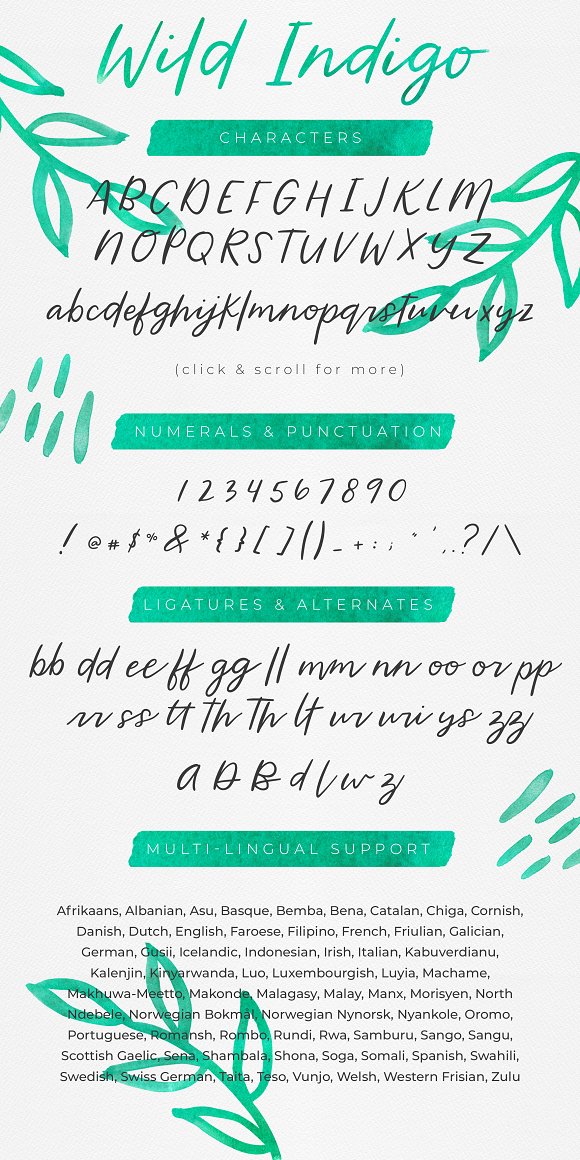 Wild Indigo
CHARACTERS
ABCDEFGHIJKLM
NOPQRSTUVWXYZ
abcdefghijklmnopqrstuvwxyz
(click & scroll for more)
NUMERALS & PUNCTUATION
1234567890
! @ # $ % & * { } [ ] ( ) _ + : ; " ' , . ? / \
LIGATURES & ALTERNATES
bb dd ee ff gg ll mm nn oo or pp
rr ss tt Th Th lt ur uri ys zz
a D B d l w z
MULTI-LINGUAL SUPPORT
Afrikaans, Albanian, Asu, Basque, Bemba, Bena, Catalan, Chiga, Cornish,
Danish, Dutch, English, Faroese, Filipino, French, Friulian, Galician,
German, Gusii, Icelandic, Indonesian, Irish, Italian, Kabuverdianu,
Kalenjin, Kinyarwanda, Luo, Luxembourgish, Luyia, Machame,
Makhuwa-Meetto, Makonde, Malagasy, Malay, Manx, Morisyen, North
Ndebele, Norwegian Bokmål, Norwegian Nynorsk, Nyankole, Oromo,
Portuguese, Romansh, Rombo, Rundi, Rwa, Samburu, Sango, Sangu,
Scottish Gaelic, Sena, Shambala, Shona, Soga, Somali, Spanish, Swahili,
Swedish, Swiss German, Taita, Teso, Vunjo, Welsh, Western Frisian, Zulu